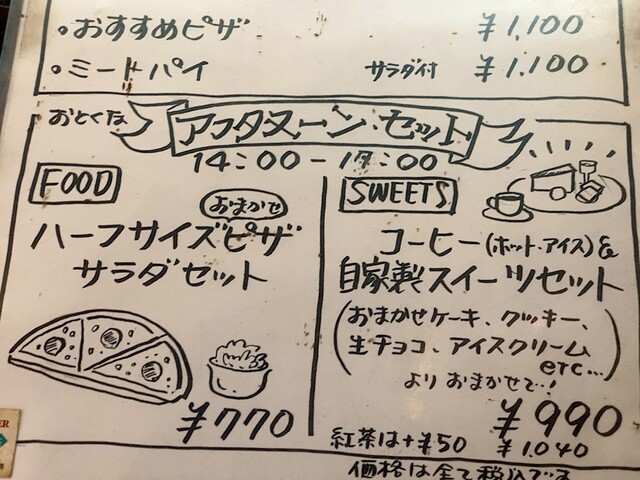 ・おすすめピザ ¥1,100
・ミートパイ サラダ付 ¥1,100
おとくな アフタヌーン・セット
14:00-17:00
FOOD
おまかせ
ハーフサイズピザ
サラダセット
¥770
SWEETS
コーヒー(ホット・アイス)&
自家製スイーツセット
(おまかせケーキ、クッキー、
生チョコ、アイスクリーム
etc...)
よりおまかせで!
¥990
紅茶は+¥50 ¥1,040
価格は全て税込です